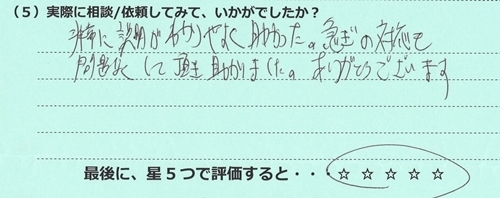 （5）実際に相談/依頼してみて、いかがでしたか？
非常に説明がわかりやすく助かった。急ぎの対応も
問題なくして頂き助かりました。ありがとうございます
最後に、星５つで評価すると・・・☆ ☆ ☆ ☆ ☆